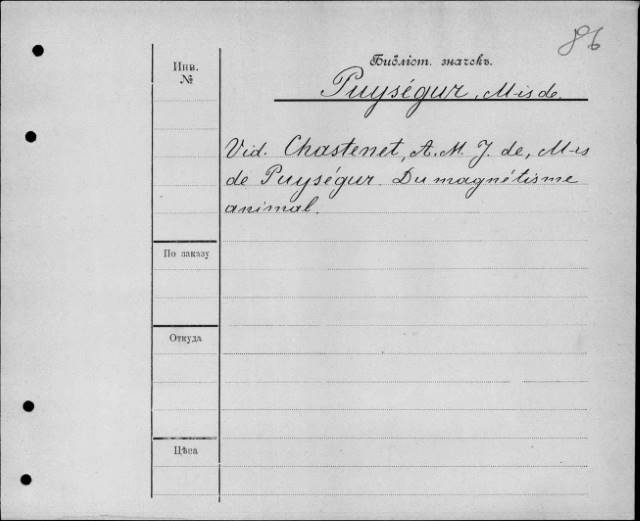 86
Инв.
№
Библіот. значекъ.
Puységur, M-is de.
Vid. Chastenet, A. M. J. de, M-is
de Puységur. Du magnétisme
animal.
По заказу
Откуда
Цѣна